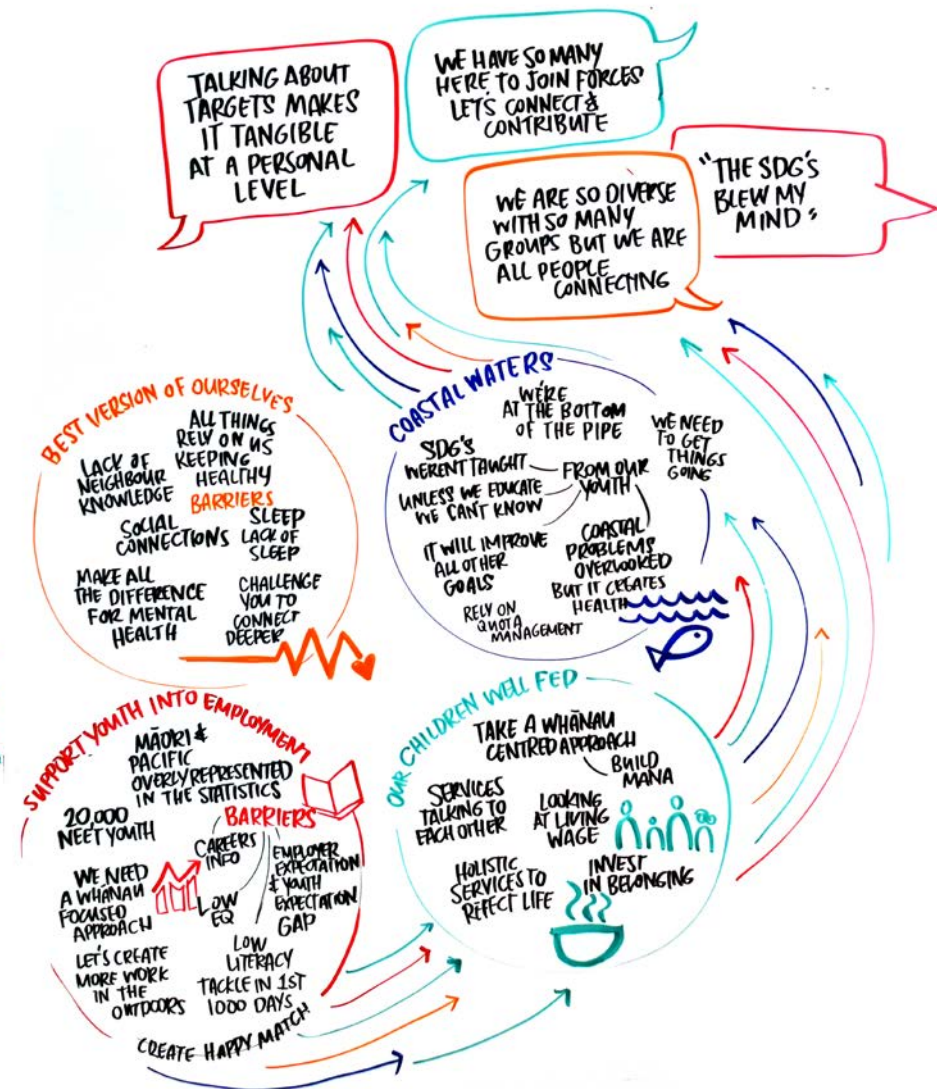 TALKING ABOUT
TARGETS MAKES
IT TANGIBLE
AT A PERSONAL
LEVEL
WE HAVE SO MANY
HERE TO JOIN FORCES
LET'S CONNECT &
CONTRIBUTE
WE ARE SO DIVERSE
WITH SO MANY
GROUPS BUT WE ARE
ALL PEOPLE
CONNECTING
"THE SDG'S
BLEW MY
MIND"
BEST VERSION OF OURSELVES
ALL THINGS
RELY ON US
KEEPING
HEALTHY
LACK OF
NEIGHBOUR
KNOWLEDGE
BARRIERS
SOCIAL
CONNECTIONS
SLEEP
LACK OF
SLEEP
MAKE ALL
THE DIFFERENCE
FOR MENTAL
HEALTH
CHALLENGE
YOU TO
CONNECT
DEEPER
COASTAL WATERS
WE'RE
AT THE BOTTOM
OF THE PIPE
WE NEED
TO GET
THINGS
GOING
SDG'S
WERENT TAUGHT
FROM OUR
YOUTH
UNLESS WE EDUCATE
WE CAN'T KNOW
IT WILL IMPROVE
ALL OTHER
GOALS
COASTAL
PROBLEMS
OVERLOOKED
BUT IT CREATES
HEALTH
RELY ON
QUOTA
MANAGEMENT
SUPPORT YOUTH INTO EMPLOYMENT
MĀORI &
PACIFIC
OVERLY REPRESENTED
IN THE STATISTICS
20,000
NEET YOUTH
BARRIERS
CAREERS
INFO
EMPLOYER
EXPECTATION
& YOUTH
EXPECTATION
GAP
WE NEED
A WHĀNAU
FOCUSED
APPROACH
LOW
EQ
LET'S CREATE
MORE WORK
IN THE
OUTDOORS
LOW
LITERACY
TACKLE IN 1ST
1000 DAYS
CREATE HAPPY MATCH
OUR CHILDREN WELL FED
TAKE A WHĀNAU
CENTRED APPROACH
BUILD
MANA
SERVICES
TALKING TO
EACH OTHER
LOOKING
AT LIVING
WAGE
HOLISTIC
SERVICES TO
REFECT LIFE
INVEST
IN BELONGING